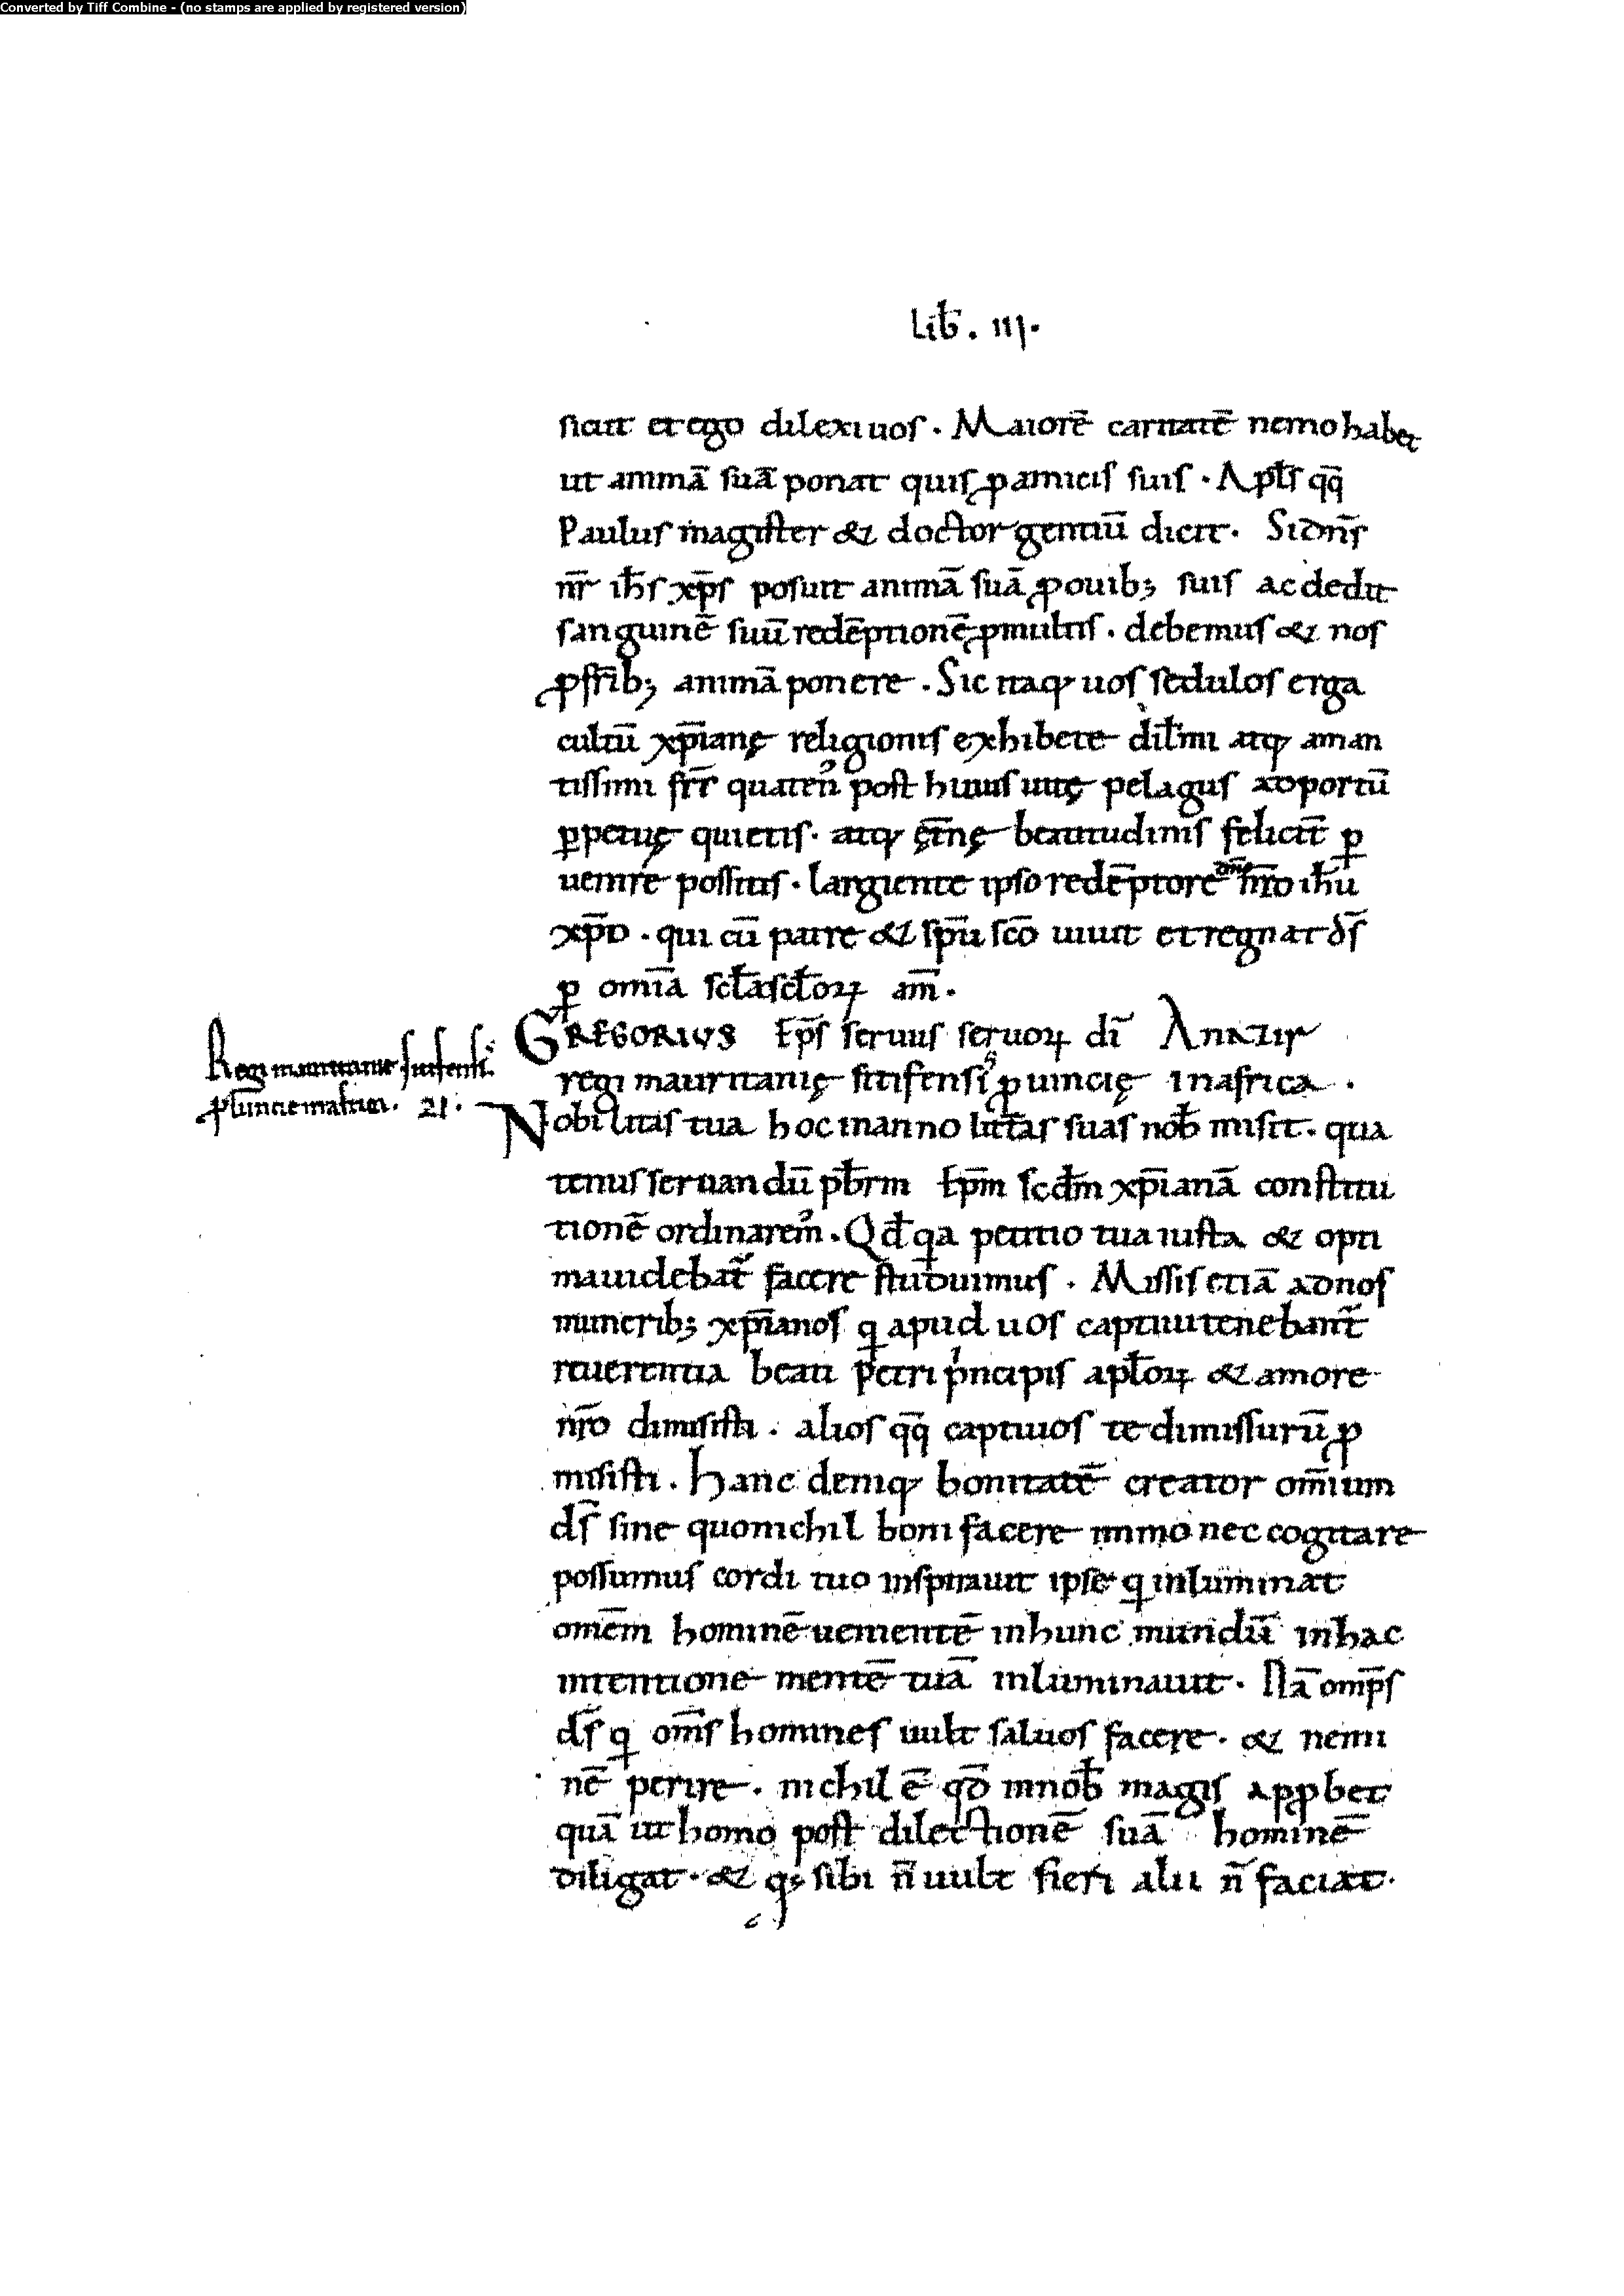 Converted by Tiff Combine - (no stamps are applied by registered version)
Lib̄ . iij.
sicut et ego dilexi uos . Maiorē caritatē nemo habet
ut animā suā ponat quis ꝓ amicis suis . Apƚs qq̄
Paulus magister & doctor gentiū dicit . Si dn̄s
nr̄ ih̄s xp̄s posuit animā suā ꝓ ouib; suis ac dedit
sanguinē suū redēptionē ꝓ multis . debemus & nos
ꝓ fr̄ib; animā ponere . Sic itaq; uos sedulos erga
cultū xp̄ianę religionis exhibete diƚmi atq; aman
tissimi fr̄s quaten᾽ post huius uitę pelagus ad portū
ꝑpetuę quietis . atq; ęt̄nę beatitudinis felicit̄ ꝑ
uenire possitis . largiente ipso redēptore om̄ nr̄o ih̄u
xp̄o . qui cū patre & sp̄u sc̄o uiuit et regnat ds̄
ꝑ om̄ia scƚa scƚoꝝ am̄ .
GREGORIVS Ep̄s seruus seruoꝝ di̅ Anazir
regi mauritanię sitifensis ꝓuincię in africa .
Regi mauritanie sitifensis
ꝓuincie in africa . 21 .
Nobilitas tua hoc in anno litt̄as suas nob̄ misit . qua
tenus seruandū pb̄rm Ep̄m scd̄m xp̄ianā constitu
tionē ordinarem᾽ . Qd̄ q̇a petitio tua iusta & opti
ma uidebat̄ facere studuimus . Missis etiā ad nos
munerib; xp̄ianos q̇ apud uos captiui tenebant̄
reuerentia beati petri pͥncipis apƚoꝝ & amore
nr̄o dimisisti . alios qq̄ captiuos te dimissurū ꝓ
misisti . Hanc deniq; bonitatē creator om̄ium
ds̄ sine quo nichil boni facere immo nec cogitare
possumus cordi tuo inspirauit ipse q̇ inluminat
omēm hominē uenientē in hunc mundū in hac
intentione mentē tuā inluminauit . Nā omp̄s
ds̄ q̇ om̄s homines uult saluos facere . & nemi
nē perire . nichil ē qd̄ in nob̄ magis apꝓbet
quā ut homo post dilectionē suā hominē
diligat . & q; sibi n̄ uult fieri alii n̄ faciat .